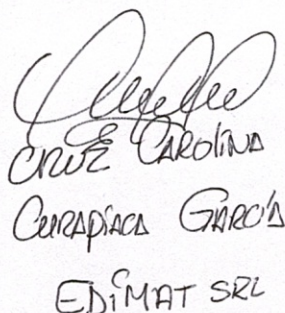 CRUZ CAROLINA
CURAPIACA GARCÍA
EDIMAT SRL